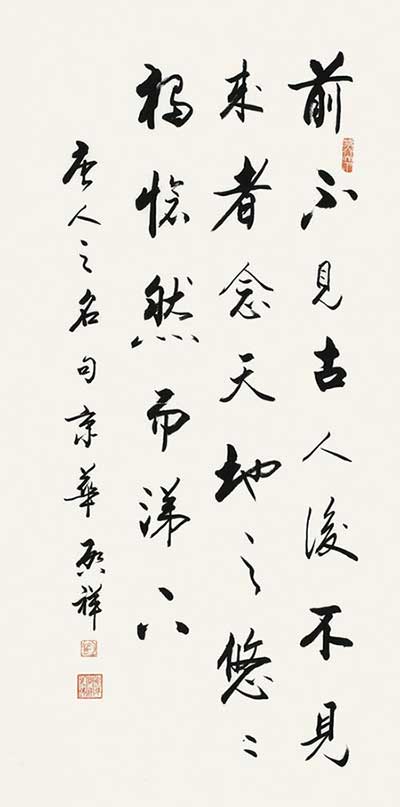 前不見古人後不見
来者念天地之悠々
獨愴然而涕下
唐人之名句京華啟祥